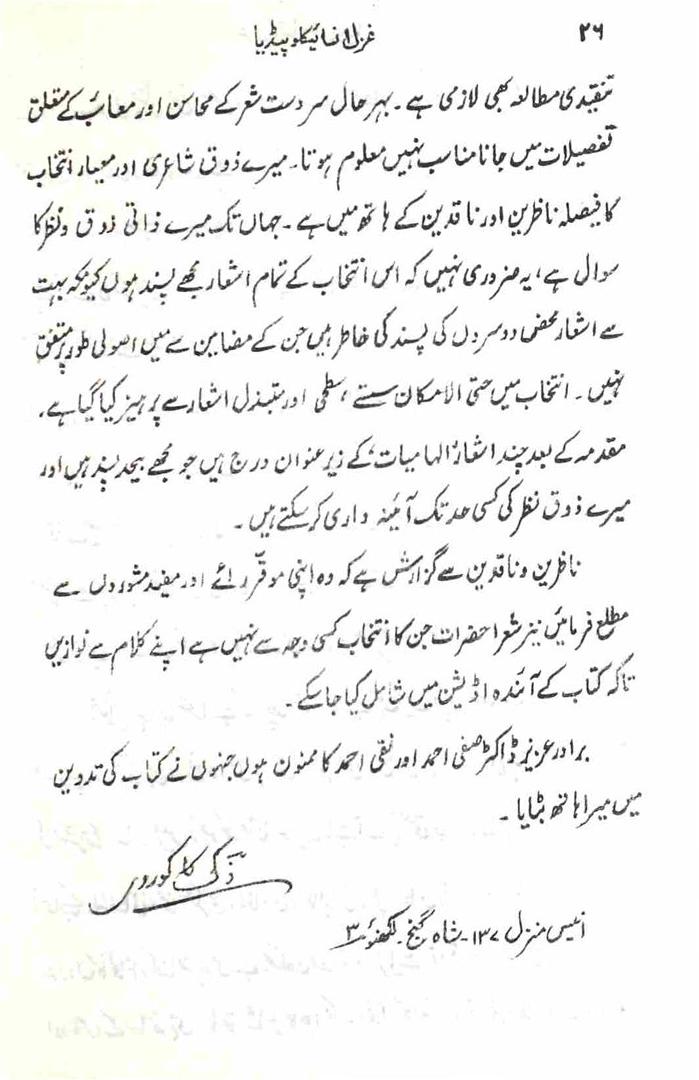 ۲۶
غزل انسائیکلوپیڈیا
تنقیدی مطالعہ بھی لازمی ہے ۔ بہر حال سر دست شعر کے محاسن اور معائب کے متعلق
تفصیلات میں جانا مناسب نہیں معلوم ہوتا۔ میرے ذوق شاعری اور معیار انتخاب
کا فیصلہ ناظرین اور ناقدین کے ہاتھ میں ہے ۔ جہاں تک میرے ذاتی ذوق و نظر کا
سوال ہے، یہ ضروری نہیں کہ اس انتخاب کے تمام اشعار مجھے پسند ہوں کیونکہ بہت
سے اشعار محض دوسروں کی پسند کی خاطر ہیں جن کے مضامین سے میں اصولی طور پر متفق
نہیں ۔ انتخاب میں حتی الامکان سستے ، سطحی اور مبتذل اشعار سے پرہیز کیا گیا ہے ،
مقدمہ کے بعد چند اشعار 'الہامیات' کے زیر عنوان درج ہیں جو مجھے بیحد پسند ہیں اور
میرے ذوق نظر کی کسی حد تک آئینہ داری کر سکتے ہیں ۔
ناظرین و ناقدین سے گزارش ہے کہ وہ اپنی موقّر رائے اور مفید مشوروں سے
مطلع فرمائیں نیز شعرا حضرات جن کا انتخاب کسی وجہ سے نہیں ہے اپنے کلام سے نوازیں
تاکہ کتاب کے آئندہ اڈیشن میں شامل کیا جا سکے ۔
برادر عزیز ڈاکٹر صفی احمد اور نقی احمد کا ممنون ہوں جنہوں نے کتاب کی تدوین
میں میرا ہاتھ بٹایا ۔
ذکی کاکوروی
انیس منزل ۱۳۷۔ شاہ گنج ۔ لکھنؤ ۳